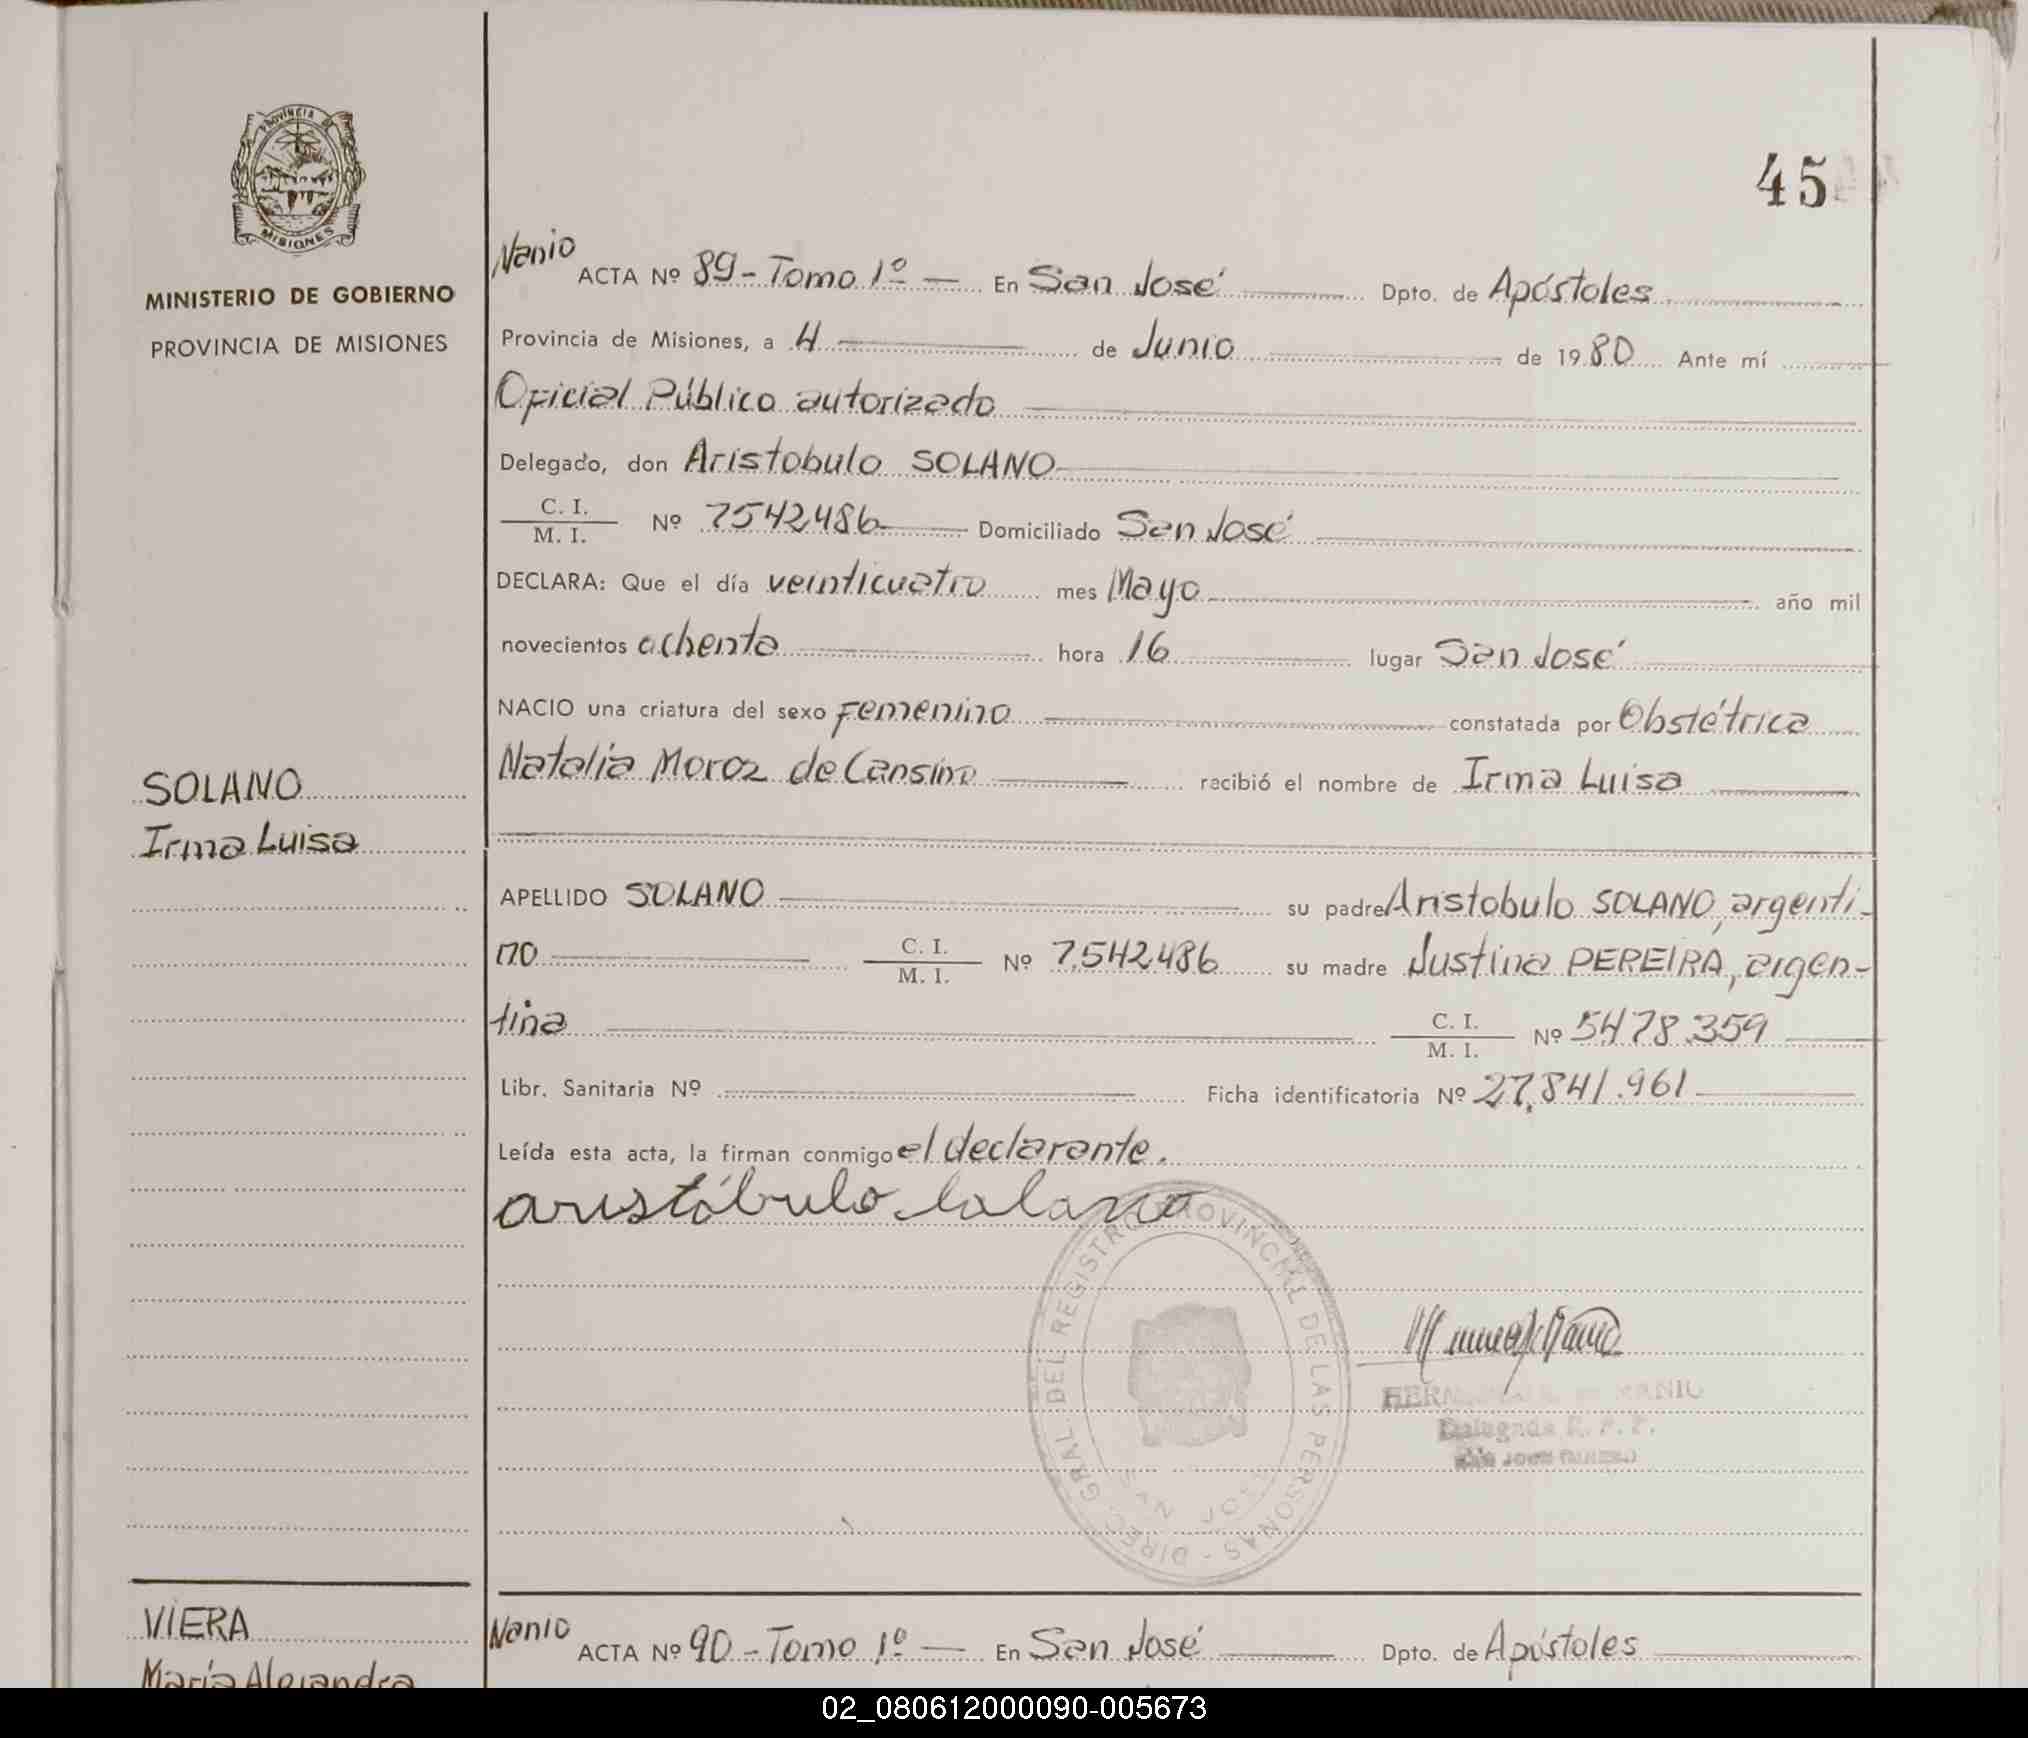 PROVINCIA DE
MISIONES
MINISTERIO DE GOBIERNO
PROVINCIA DE MISIONES
45
Nanio
ACTA Nº 89 - Tomo 1º — En San José Dpto. de Apóstoles
Provincia de Misiones, a 4 de Junio de 1980 Ante mí
Oficial Público autorizado
Delegado, don Aristobulo SOLANO
C. I.
M. I. Nº 7542486 Domiciliado San José
DECLARA: Que el día veinticuatro mes Mayo año mil
novecientos ochenta hora 16 lugar San José
NACIO una criatura del sexo Femenino constatada por Obstétrica
Natalia Moroz de Cansino recibió el nombre de Irma Luisa
SOLANO
Irma Luisa
APELLIDO SOLANO su padre Aristobulo SOLANO, argenti-
no C. I.
M. I. Nº 7.542.486 su madre Justina PEREIRA, argen-
tina C. I.
M. I. Nº 5478.359
Libr. Sanitaria Nº Ficha identificatoria Nº 27.841.961
Leída esta acta, la firman conmigo el declarante.
aristóbulo Solano
DIREC. GRAL. DEL REGISTRO PROVINCIAL DE LAS PERSONAS -
SAN JOSE
Delegada R. P. P.
VIERA
María Alejandra
Nanio
ACTA Nº 90 - Tomo 1º — En San José Dpto. de Apóstoles
02_080612000090-005673